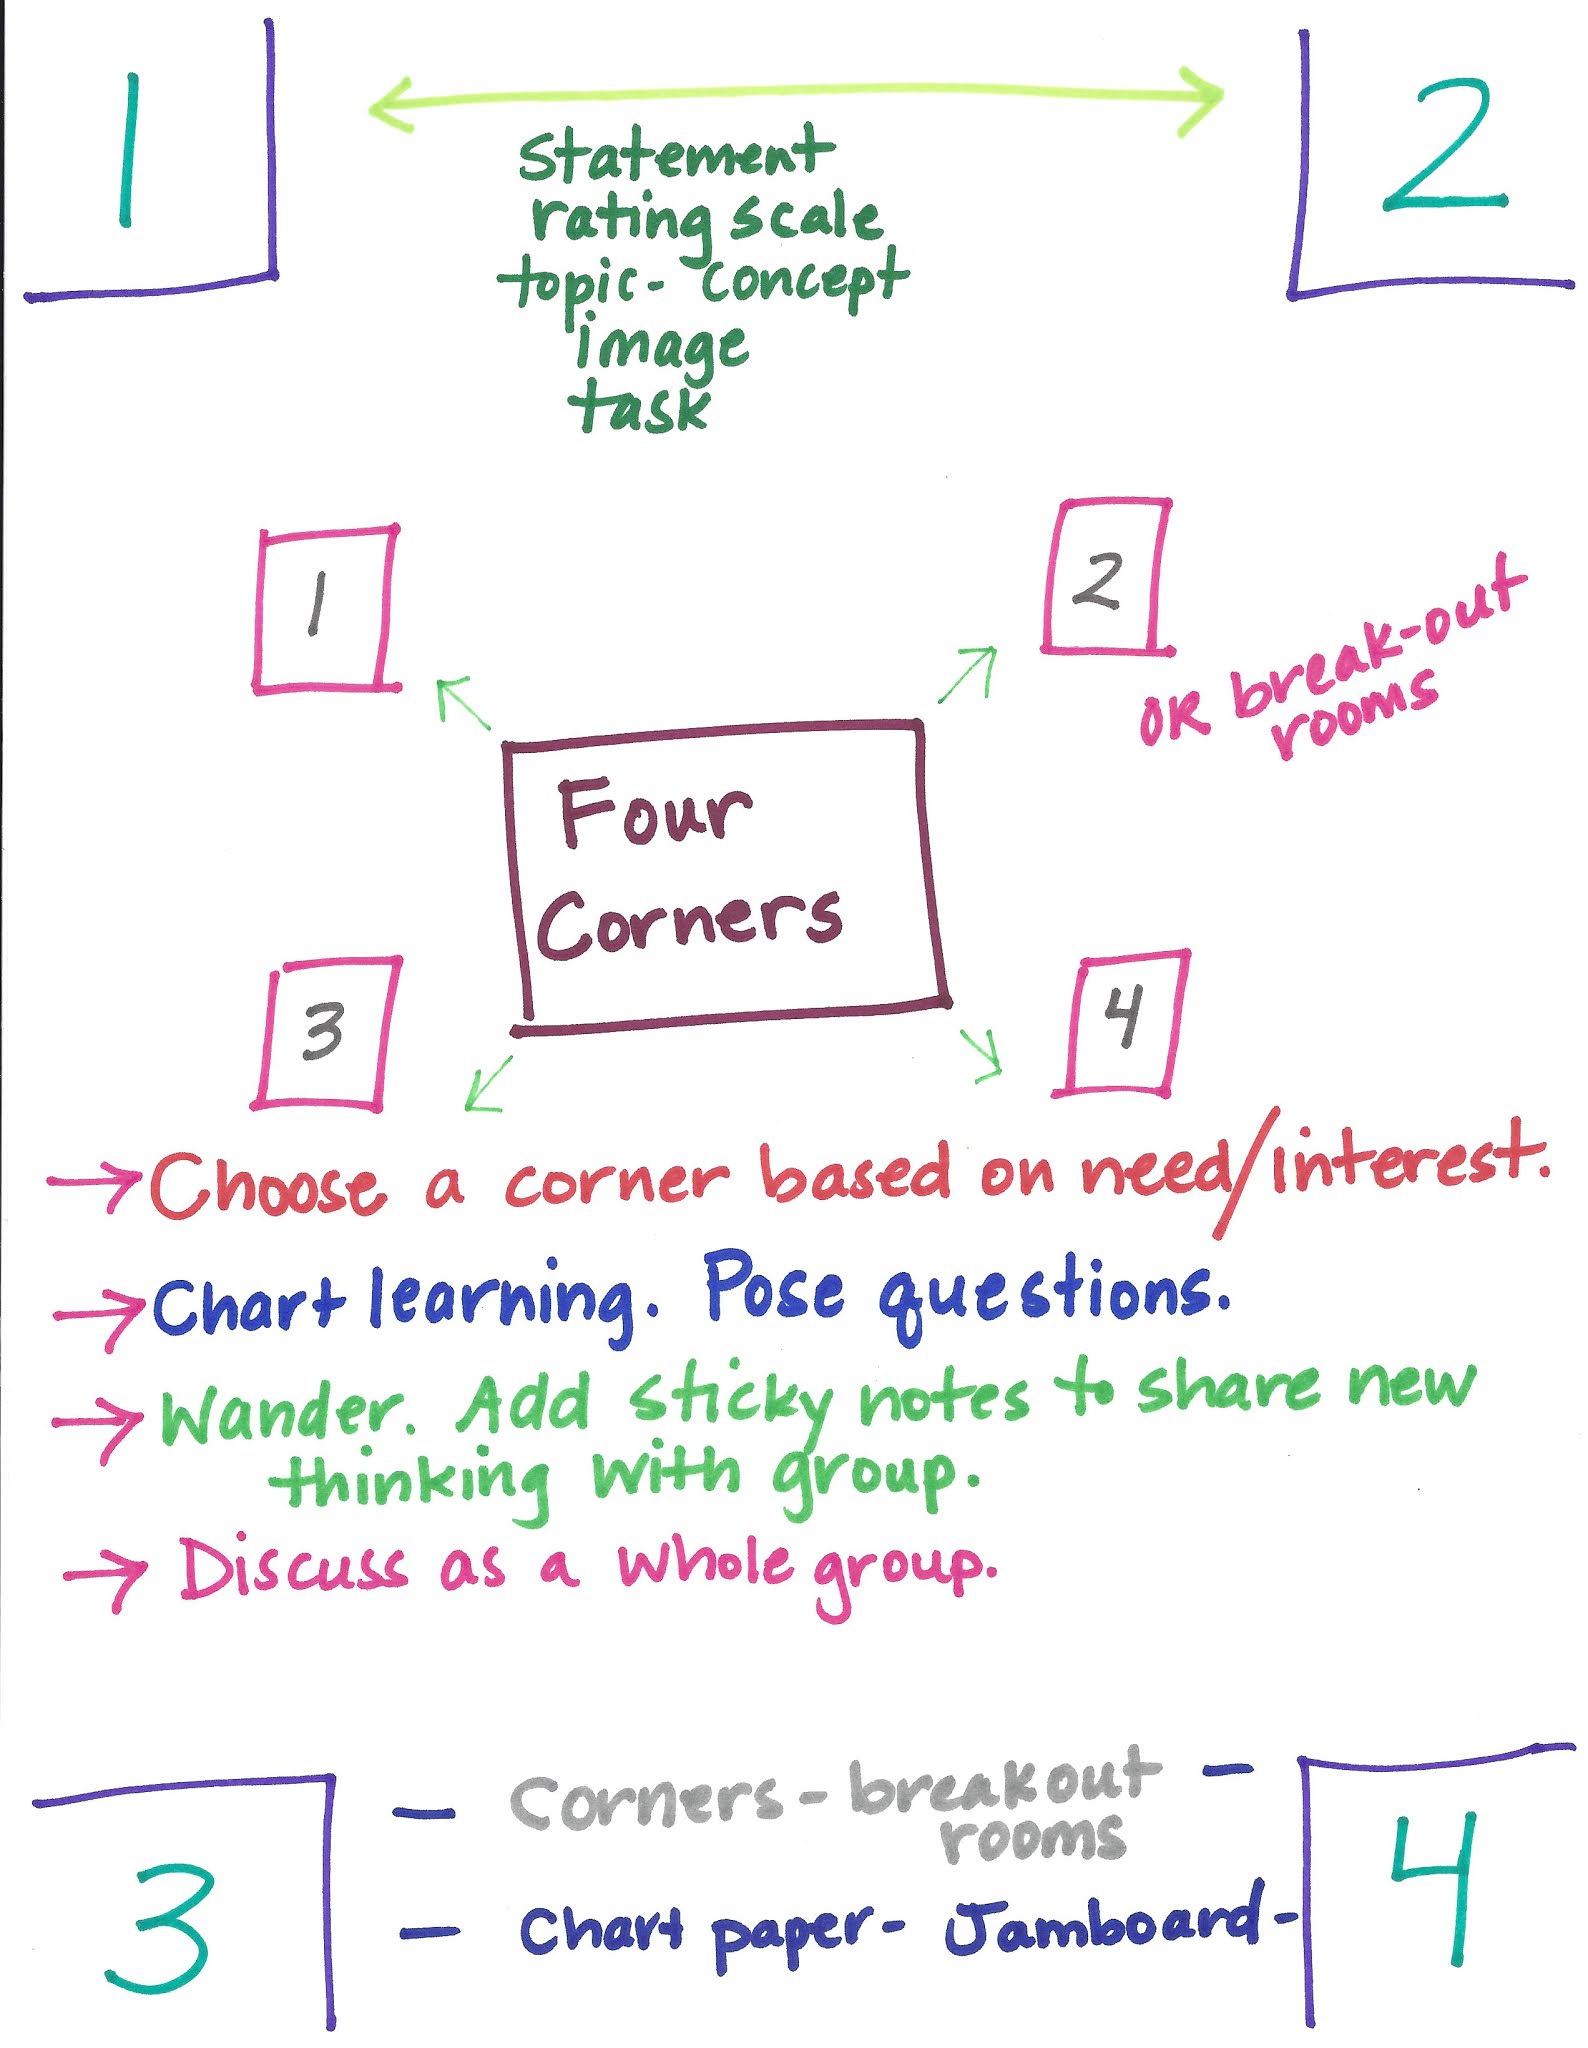 1
2
Statement
rating scale
topic- concept
image
task
1
2
OR break-out
rooms
Four
Corners
3
4
→ Choose a corner based on need/interest.
→ Chart learning. Pose questions.
→ Wander. Add sticky notes to share new
thinking with group.
→ Discuss as a whole group.
3
4
- Corners - breakout -
rooms
- Chart paper - Jamboard -